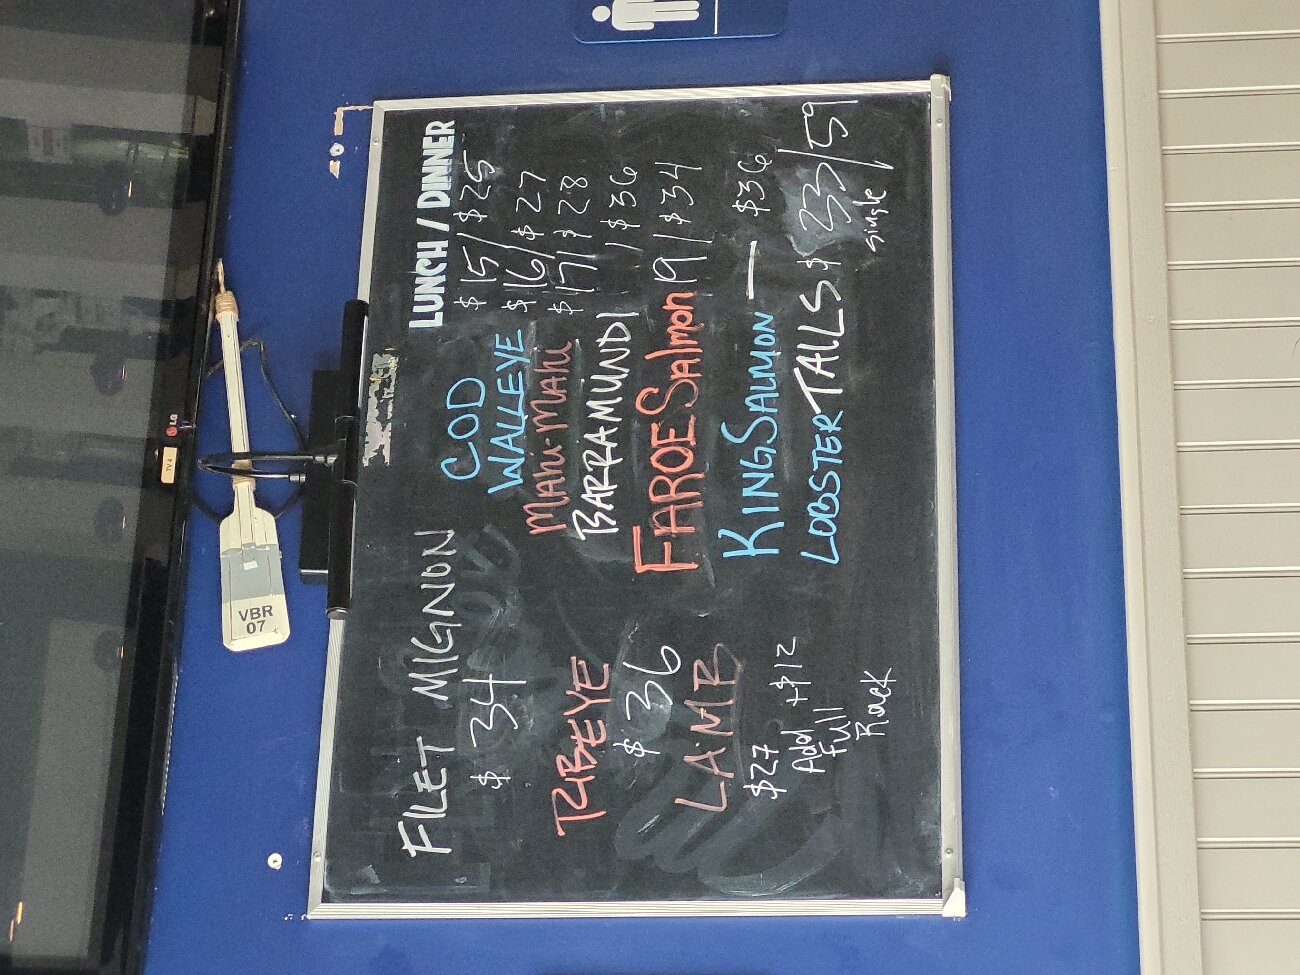 LUNCH / DINNER
FILET MIGNON
$34
RIBEYE
$36
LAMB
$27
Add +$12
Full
Rack
COD $15/$25
WALLEYE $16/$27
MAHI-MAHI $17/$28
BARRAMUNDI / $36
FAROE Salmon 19/$34
KING SALMON — $36
LOBSTER TAILS $33/59
single
VBR
07
LG